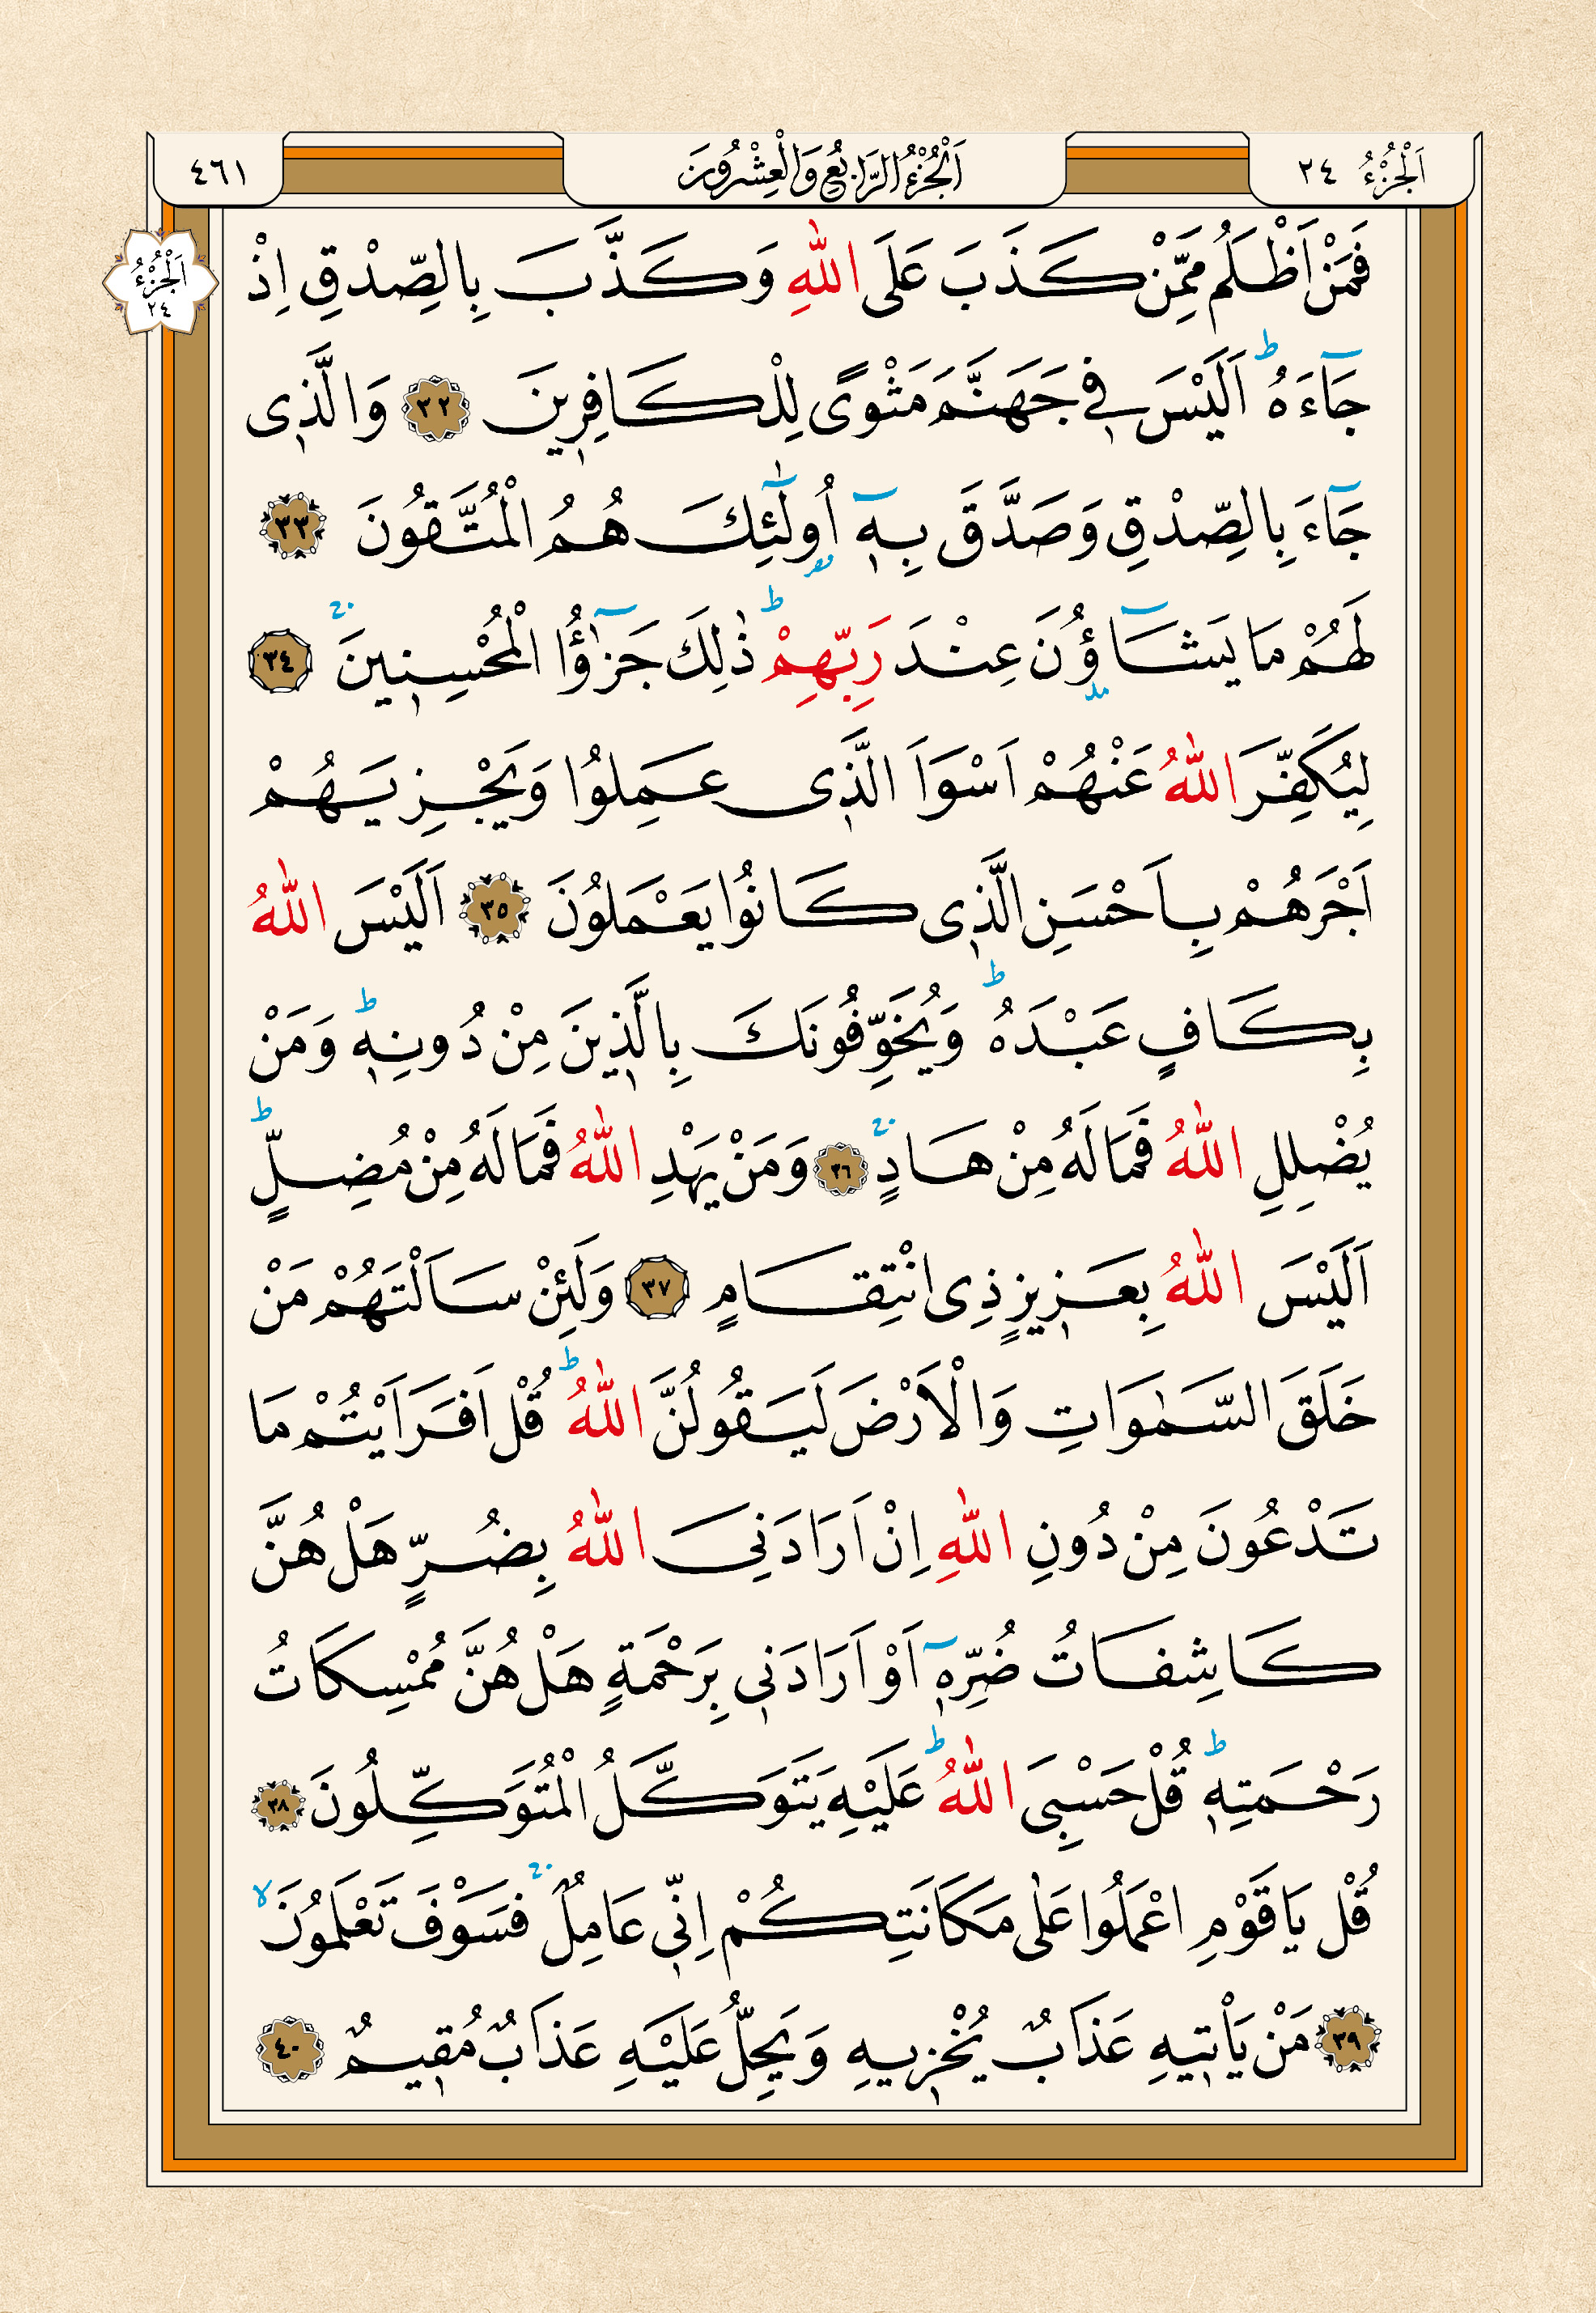 اَلْجُزْءُ ٢٤
اَلْجُزْءُ الرَّابِعُ وَالْعِشْرُونَ
٤٦١
اَلْجُزْءُ
٢٤
فَمَنْ اَظْلَمُ مِمَّنْ كَذَبَ عَلَى اللّٰهِ وَكَذَّبَ بِالصِّدْقِ اِذْ
جَٓاءَهُۜ اَلَيْسَ ف۪ي جَهَنَّمَ مَثْوًى لِلْكَافِر۪ينَ ٣٢ وَالَّذ۪ى
جَٓاءَ بِالصِّدْقِ وَصَدَّقَ بِه۪ٓ اُو۬لٰٓئِكَ هُمُ الْمُتَّقُونَ ٣٣
لَهُمْ مَا يَشَٓاؤُ۫نَ عِنْدَ رَبِّهِمْۜ ذٰلِكَ جَزٰٓؤُا الْمُحْسِن۪ينَۚ ٣٤
لِيُكَفِّرَ اللّٰهُ عَنْهُمْ اَسْوَاَ الَّذ۪ى عَمِلُوا وَيَجْزِيَهُمْ
اَجْرَهُمْ بِاَحْسَنِ الَّذ۪ى كَانُوا يَعْمَلُونَ ٣٥ اَلَيْسَ اللّٰهُ
بِكَافٍ عَبْدَهُۜ وَيُخَوِّفُونَكَ بِالَّذ۪ينَ مِنْ دُونِه۪ۜ وَمَنْ
يُضْلِلِ اللّٰهُ فَمَا لَهُ مِنْ هَادٍۚ ٣٦ وَمَنْ يَهْدِ اللّٰهُ فَمَا لَهُ مِنْ مُضِلٍّۜ
اَلَيْسَ اللّٰهُ بِعَز۪يزٍ ذِى انْتِقَامٍ ٣٧ وَلَئِنْ سَاَلْتَهُمْ مَنْ
خَلَقَ السَّمٰوَاتِ وَالْاَرْضَ لَيَقُولُنَّ اللّٰهُۜ قُلْ اَفَرَاَيْتُمْ مَا
تَدْعُونَ مِنْ دُونِ اللّٰهِ اِنْ اَرَادَنِىَ اللّٰهُ بِضُرٍّ هَلْ هُنَّ
كَاشِفَاتُ ضُرِّه۪ٓ اَوْ اَرَادَن۪ى بِرَحْمَةٍ هَلْ هُنَّ مُمْسِكَاتُ
رَحْمَتِه۪ۜ قُلْ حَسْبِىَ اللّٰهُۜ عَلَيْهِ يَتَوَكَّلُ الْمُتَوَكِّلُونَ ٣٨
قُلْ يَا قَوْمِ اعْمَلُوا عَلٰى مَكَانَتِكُمْ اِنّ۪ى عَامِلٌۚ فَسَوْفَ تَعْلَمُونَۙ
٣٩ مَنْ يَاْت۪يهِ عَذَابٌ يُخْز۪يهِ وَيَحِلُّ عَلَيْهِ عَذَابٌ مُق۪يمٌ ٤٠